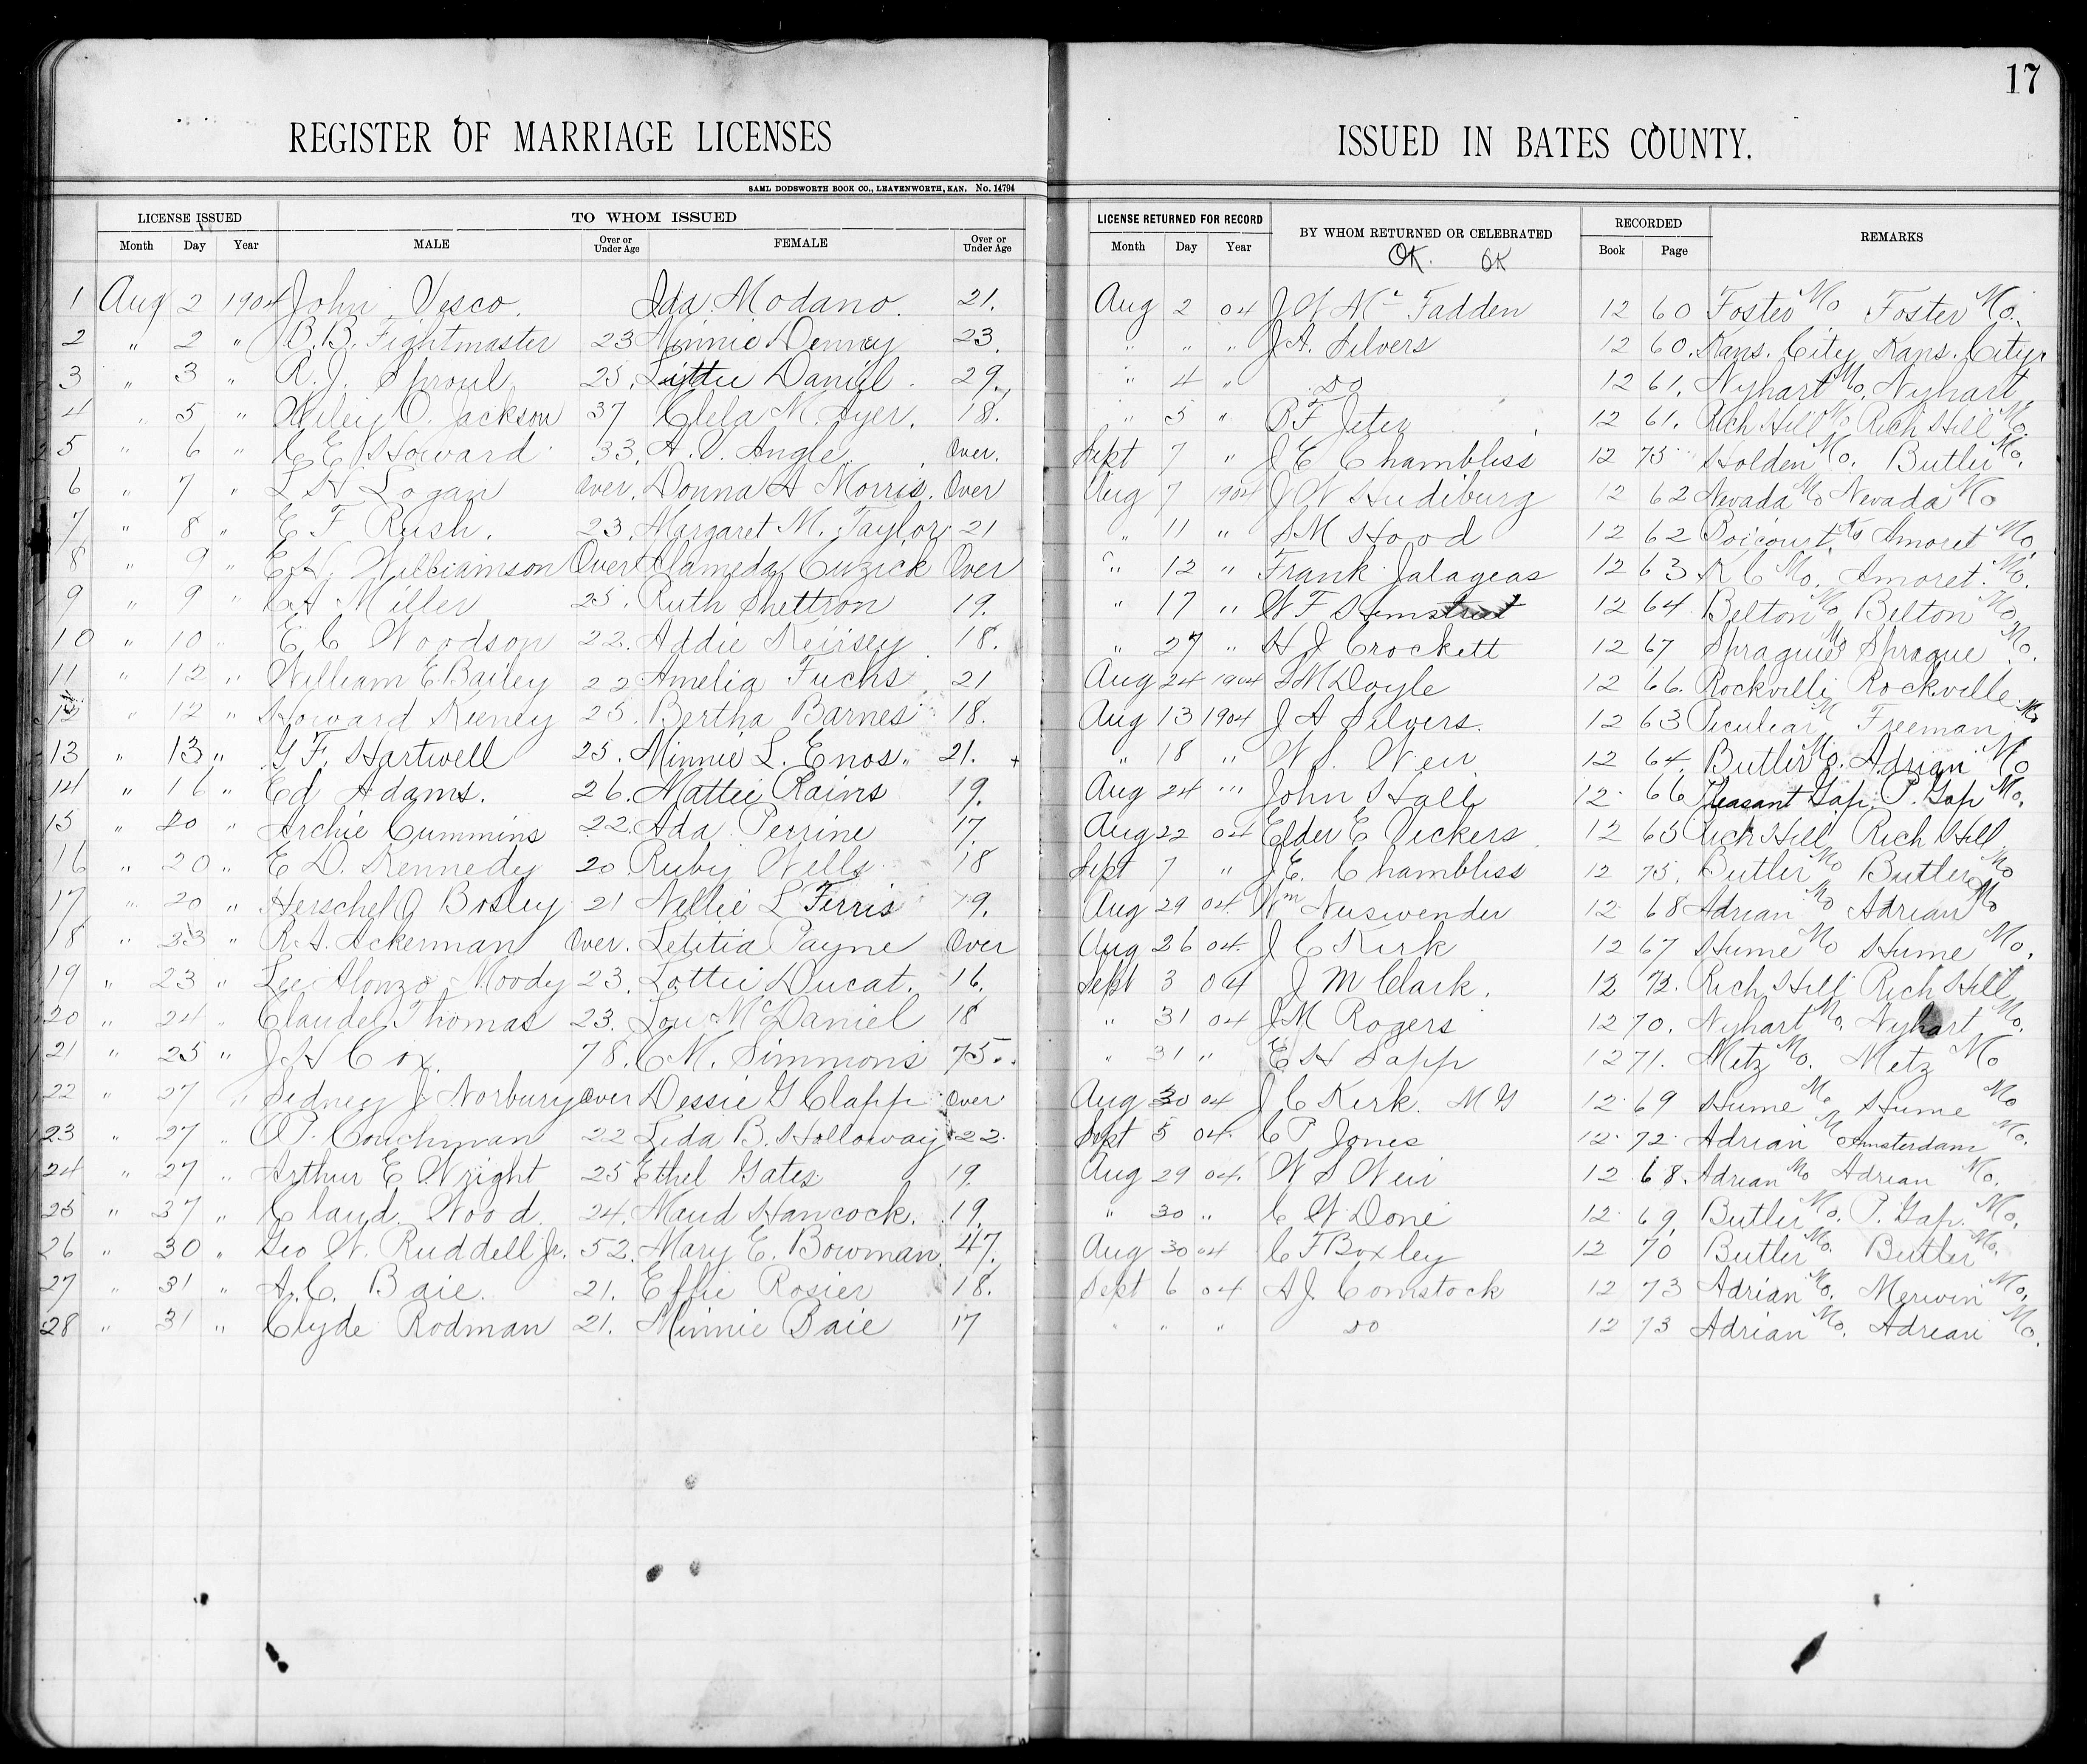 17
REGISTER OF MARRIAGE LICENSES ISSUED IN BATES COUNTY.
SAML DODSWORTH BOOK CO., LEAVENWORTH, KAN. No. 14794
LICENSE ISSUED TO WHOM ISSUED LICENSE RETURNED FOR RECORD BY WHOM RETURNED OR CELEBRATED RECORDED REMARKS
Month Day Year MALE Over or Under Age FEMALE Over or Under Age Month Day Year Book Page
OK. OK
1 Aug 2 1904 John Vesco. Ida Modano. 21. Aug 2 04 J W Mc Fadden 12 60 Foster Mo Foster Mo.
2 " 2 " B. B. Fightmaster 23 Minnie Denney 23. " " " J A. Silvers 12 60. Kans. City Kans. City
3 " 3 " R. J. Sproul 25. Daniel. 29. " 4 " do 12 61. Nyhart Mo. Nyhart
4 " 5 " Wiley O. Jackson 37 Clela M. Ayer. 18. " 5 " B F Jeter 12 61. Rich Hill Mo Rich Hill Mo.
5 " 6 " C E Howard 33. A. V. Angle Over. Sept 7 " J E Chambliss 12 75 Holden Mo. Butler Mo.
6 " 7 " L H Logan Over. Donna A Morris. Over Aug 7 1904 J W Hudiburg 12 62 Nevada Mo Nevada Mo
7 " 8 " E F Rush. 23. Margaret M. Taylor 21 " 11 " S M Hood 12 62 Boicourt Ks Amoret Mo
8 " 9 " E. H. Williamson Over Clameda Cuzick Over " 12 " Frank Jalageas 12 63 K C Mo. Amoret. Mo.
9 " 9 " C A Miller 25. Ruth Shettron 19. " 17 " W F 12 64 Belton Mo Belton Mo.
10 " 10 " E. C Woodson 22. Addie Keirsey 18. " 27 " H J Crockett 12 67 Sprague Mo Sprague Mo.
11 " 12 " William E. Bailey 22 Amelia Fuchs 21 Aug 24 1904 S M Doyle 12 66. Rockville Rockville
12 " 12 " Howard Keeney 25. Bertha Barnes 18. Aug 13 1904 J A Silvers. 12 63 Peculiar M Freeman Mo
13 " 13 " G F. Hartwell 25. Minnie L. Enos. 21. + " 18 " W S. Weir 12 64. Butler Mo. Adrian Mo
14 " 16 " Ed Adams. 26. Mattie Rains 19. Aug 24 " John Hall 12 66 Pleasant Gap. P. Gap Mo.
15 " 20 " Archie Cummins 22. Ada Perrine 17. Aug 22 04 Elder E Vickers 12 65 Rich Hill Rich Hill
16 " 20 " E D. Kennedy 20 Ruby Wells 18 Sept 7 " J. E. Chambliss 12 75. Butler Mo Butler Mo
17 " 20 " Herschel O Bosley 21 Nellie L Ferris 19. Aug 29 04. Wm Nuswender 12 68 Adrian Mo Adrian Mo
18 " 23 " R. A. Ackerman Over. Letitia Payne Over Aug 26 04. J C Kirk 12 67 Hume Mo Hume Mo.
19 " 23 " Lee Alonzo Moody 23. Lottie Ducat. 16. Sept 3 04 J M Clark. 12 72. Rich Hill Rich Hill
20 " 24 " Claude Thomas 23. Lou McDaniel 18 " 31 04 J M Rogers 12 70. Nyhart Mo. Nyhart Mo.
21 " 25 " J H Cox. 78. C M. Simmons 75. " 31 " E H Sapp 12 71. Metz Mo. Metz Mo
22 " 27 " Sidney J Norbury Over Dessie G Clapp Over Aug 30 04 J C Kirk. M G 12 69 Hume Mo Hume Mo
23 " 27 " O P. Couchman 22 Leda B. Holloway 22. Sept 5 04. C P Jones 12 72. Adrian Mo Amsterdam Mo.
24 " 27 " Arthur E. Wright 25 Ethel Gates 19. Aug 29 04. W S Weir 12 68. Adrian Mo Adrian Mo.
25 " 27 " Claud. Wood 24. Maud Hancock. 19. " 30 " C W Done 12 69. Butler Mo. P. Gap. Mo.
26 " 30 " Geo W. Ruddell Jr. 52. Mary E. Bowman 47. Aug 30 04 C F Boxley 12 70 Butler Mo. Butler Mo.
27 " 31 " A. C. Baie. 21. Effie Rosier 18. Sept 6 04 A J Comstock 12 73 Adrian Mo. Merwin Mo.
28 " 31 " Clyde Rodman 21. Minnie Baie 17 " " " do 12 73 Adrian Mo. Adrian Mo.